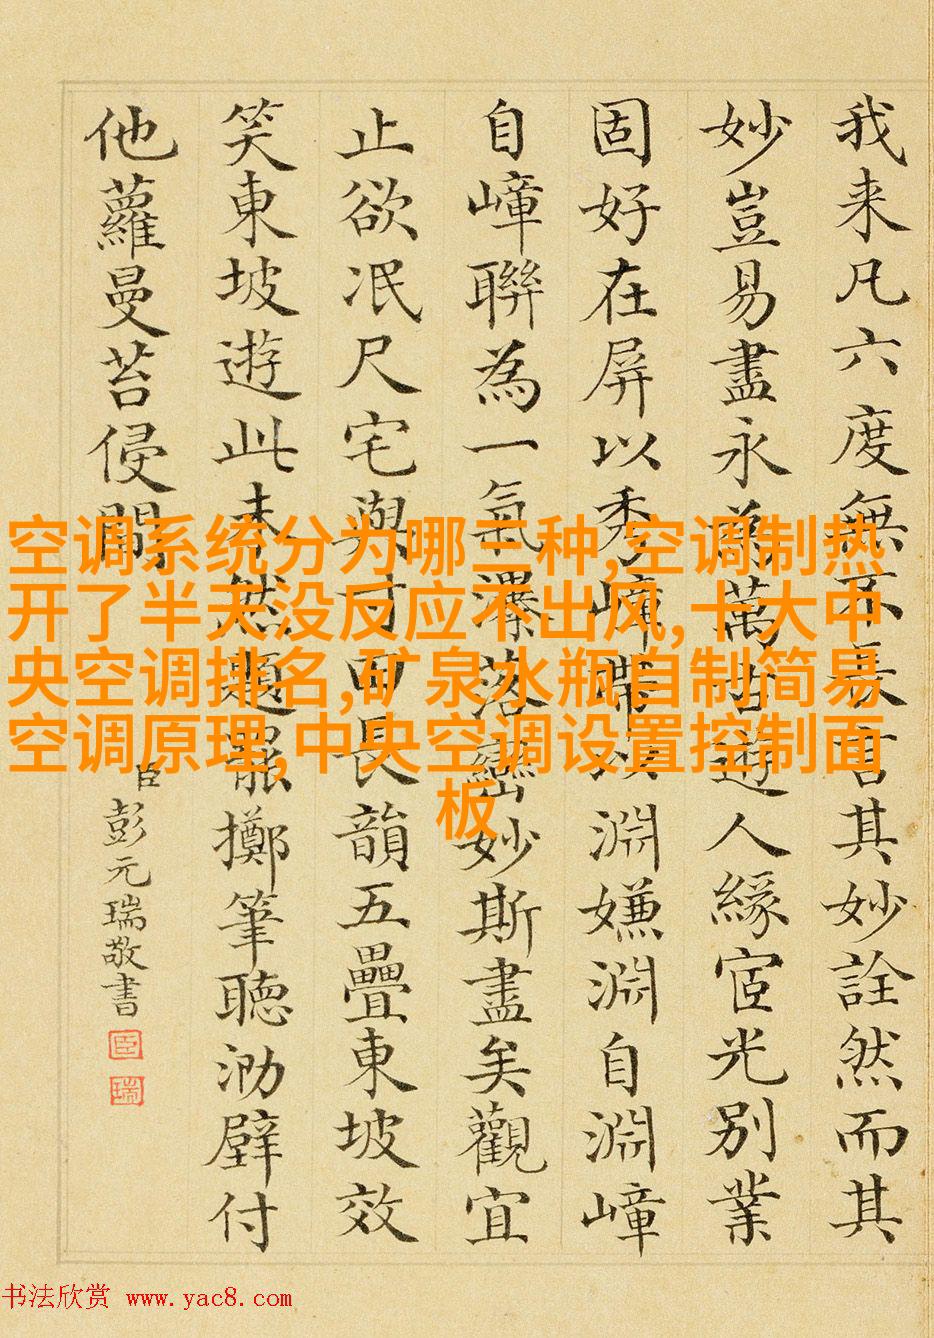 我来凡六度無不長言其妙詮然而其
妙豈易盡永萬遊人緣宧光別業
固好在屏以秀嶂帶淵嫌淵自淵嶂
自嶂聯為一氣瀑落巒妙斯盡矣觀宜
止欲泯尺宅與寸田長韻五疊東坡效
笑東坡遊此未然題罷擲筆聽泐壁付
他蘿曼苔侵
臣彭元瑞敬書
臣
瑞
空调系统分为哪三种,空调制热
开了半天没反应不出风,十大中
央空调排名,矿泉水瓶自制简易
空调原理,中央空调设置控制面
板
书法欣赏 www.yac8.com